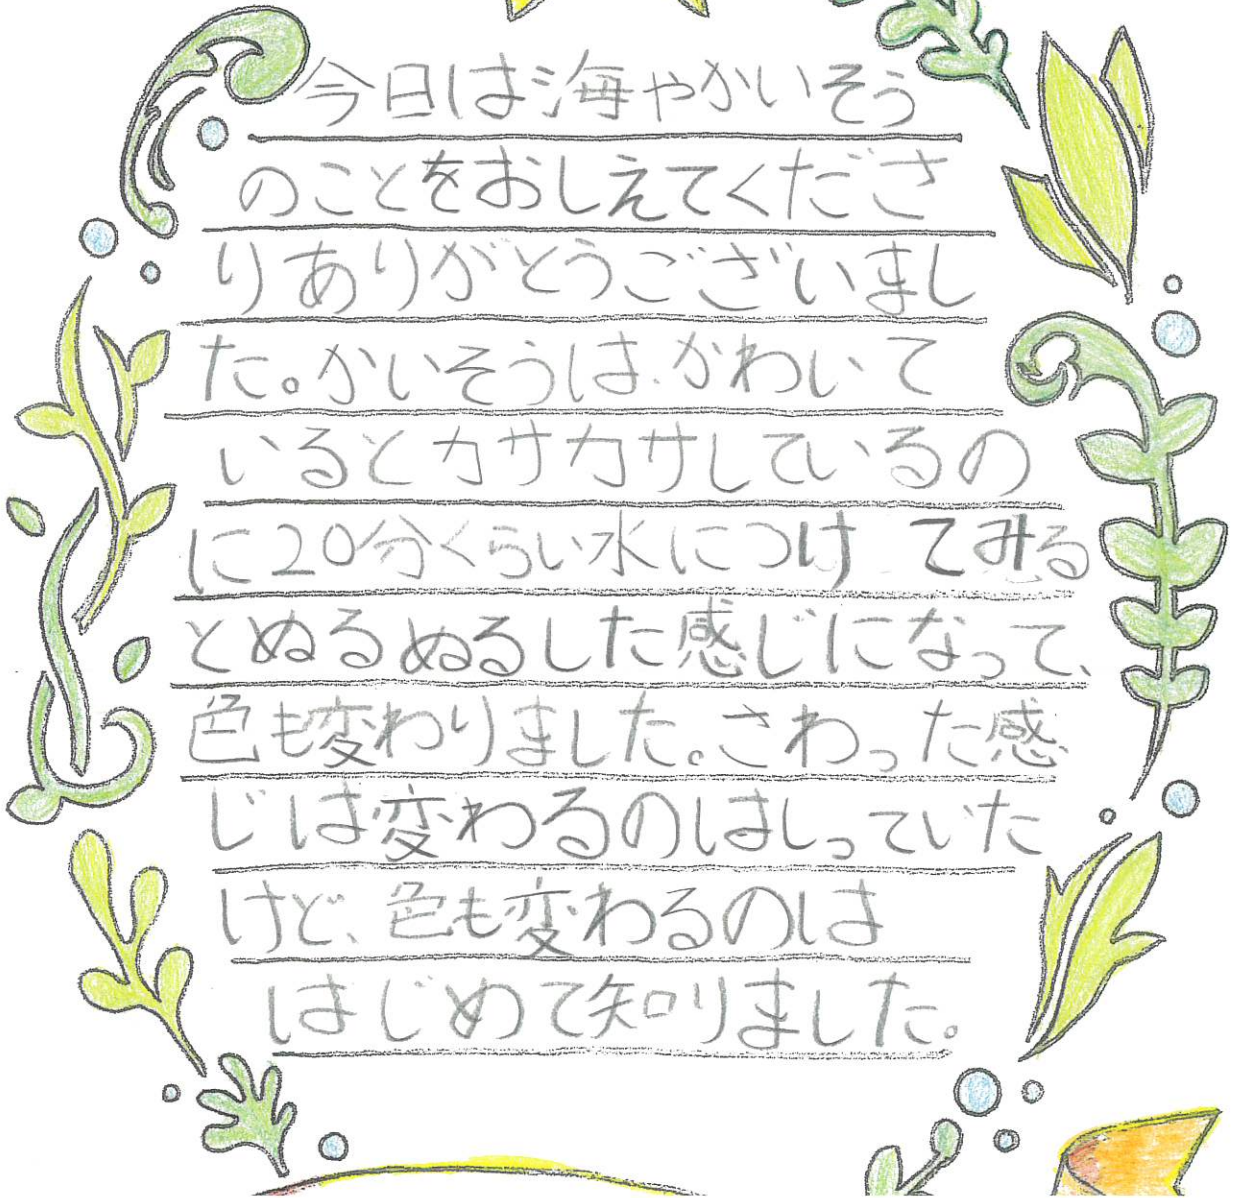 今日は海やかいそう
のことをおしえてくださ
りありがとうございまし
た。かいそうは、かわいて
いるとカサカサしているの
に20分くらい水につけてみる
とぬるぬるした感じになって、
色も変わりました。さわった感
じは変わるのはしっていた
けど、色も変わるのは
はじめて知りました。